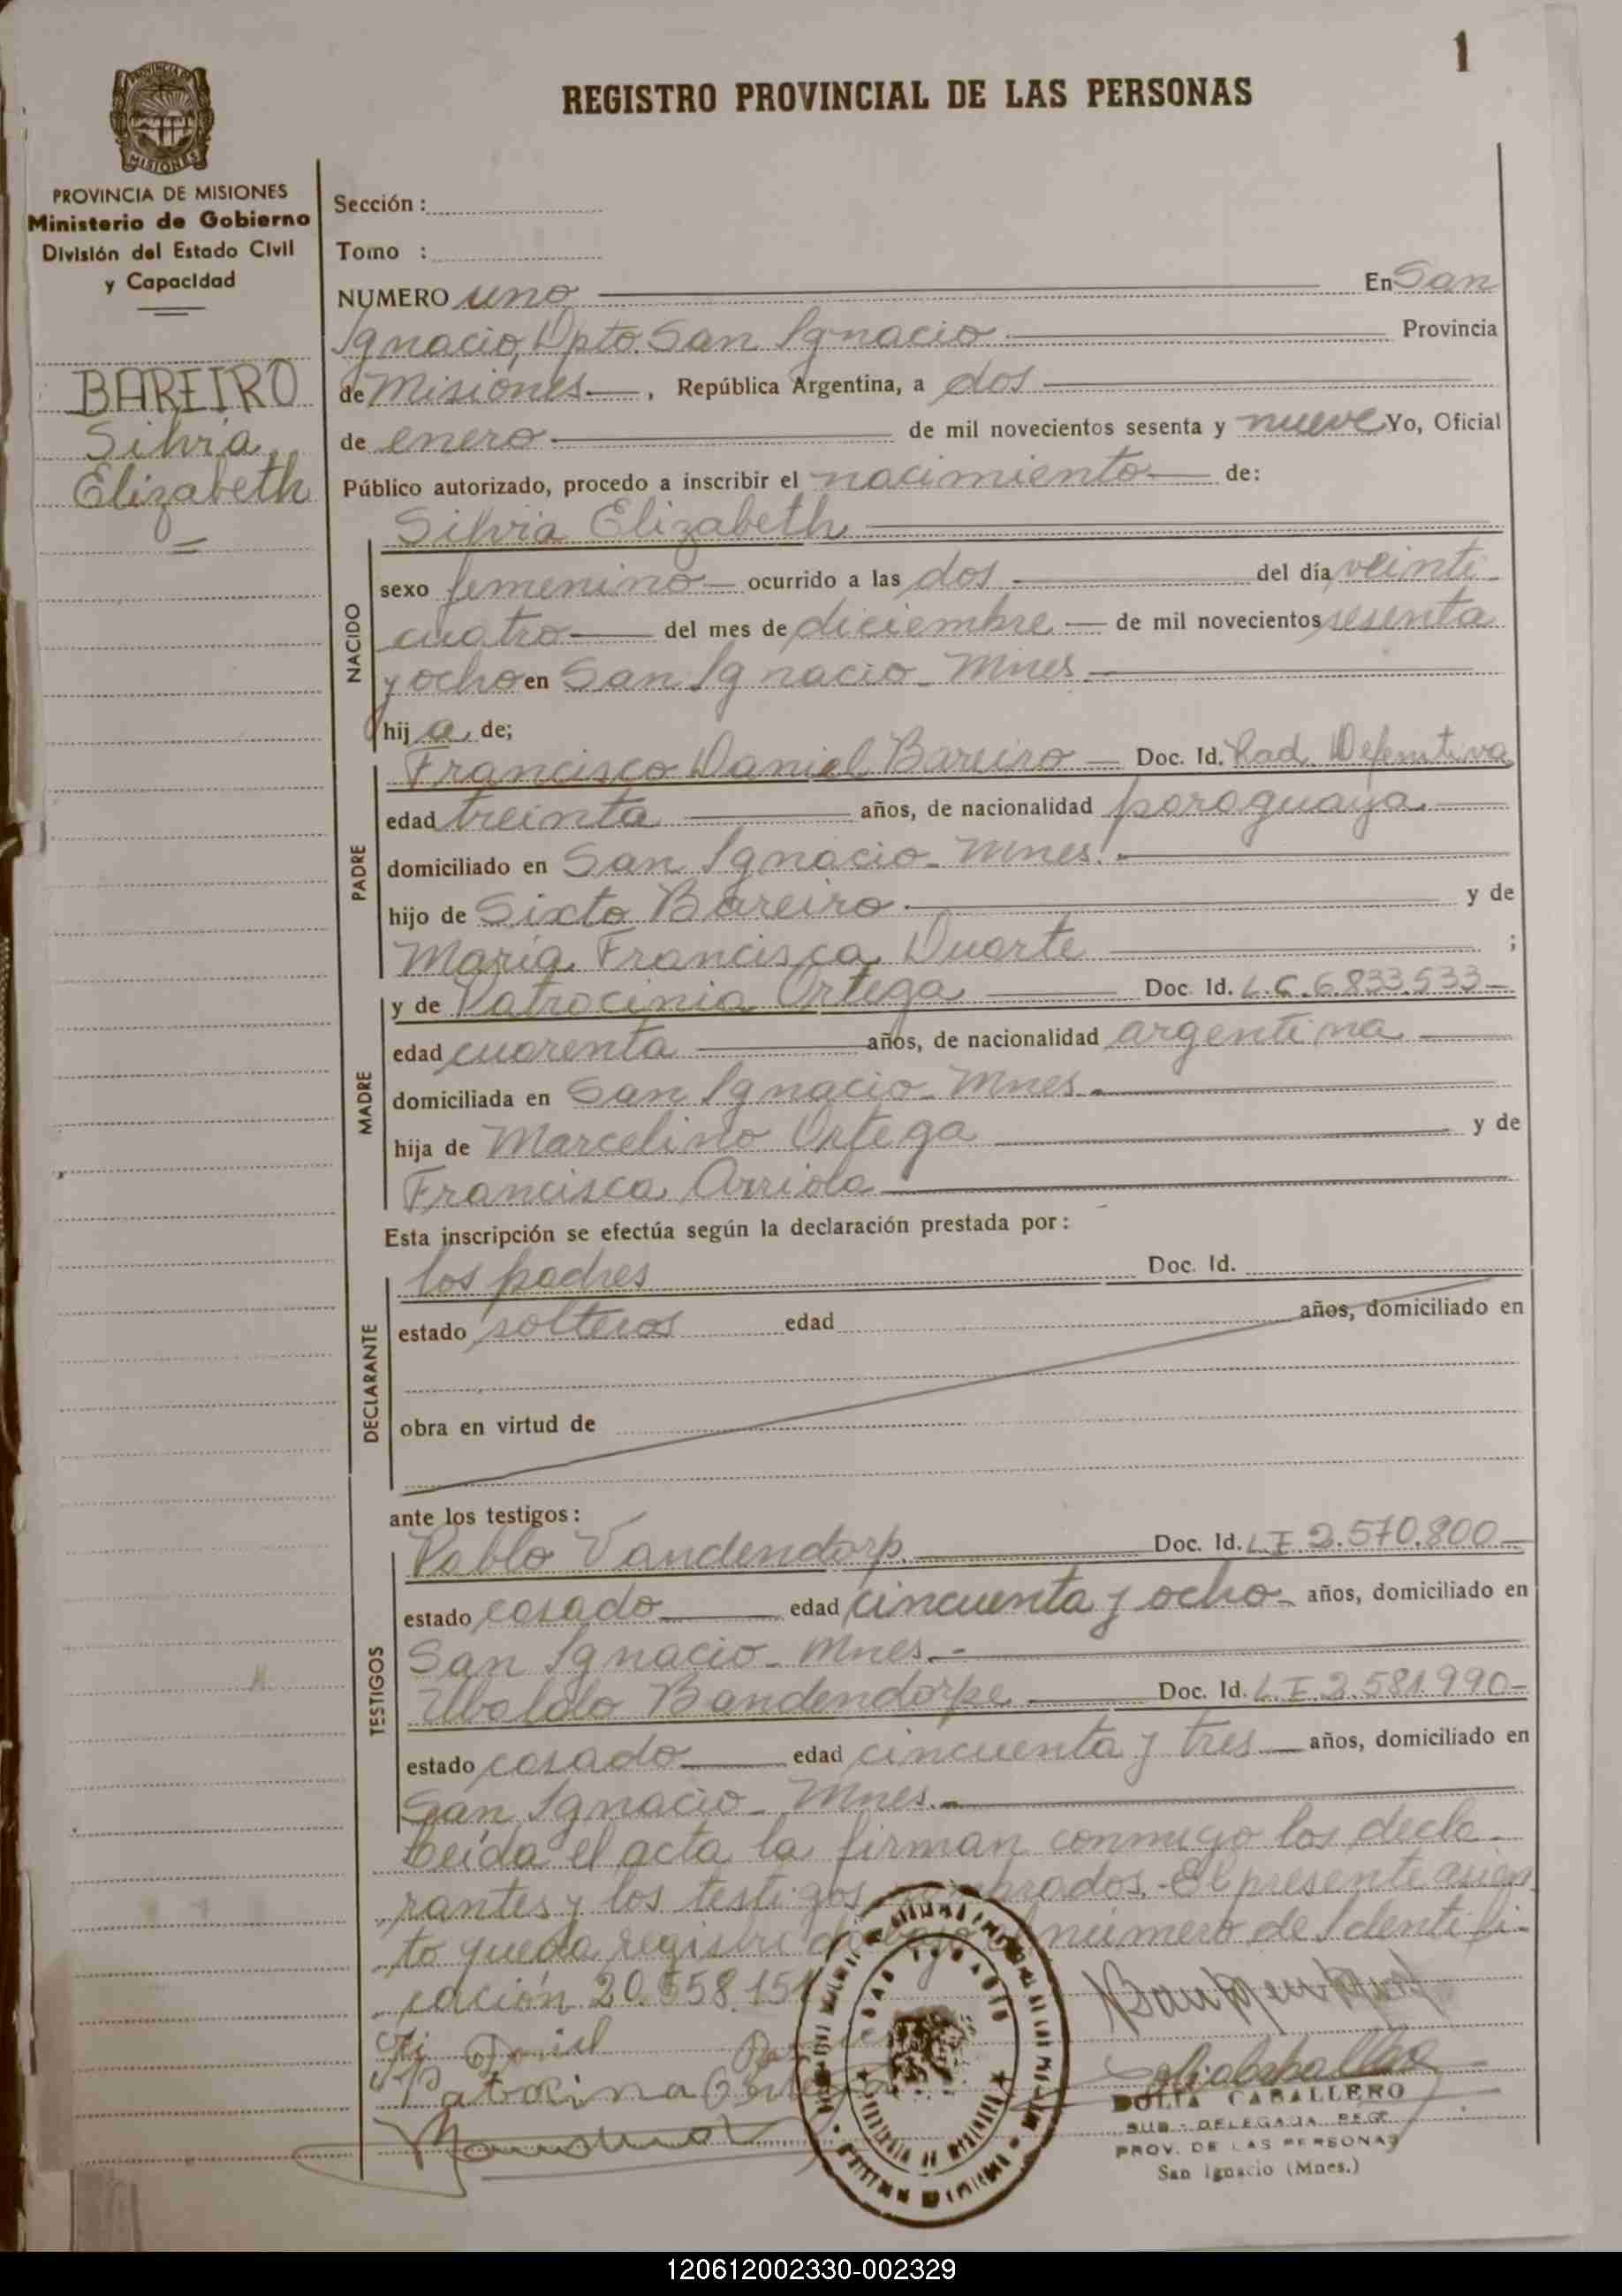 1
REGISTRO PROVINCIAL DE LAS PERSONAS
PROVINCIA DE
MISIONES
PROVINCIA DE MISIONES
Ministerio de Gobierno
División del Estado Civil
y Capacidad
BAREIRO
Silvia
Elizabeth
Sección :
Tomo :
NUMERO uno En San
Ignacio, Dpto. San Ignacio Provincia
de Misiones , República Argentina, a dos
de enero de mil novecientos sesenta y nueve Yo, Oficial
Público autorizado, procedo a inscribir el nacimiento de:
Silvia Elizabeth
NACIDO
sexo femenino ocurrido a las dos del día veinti
cuatro del mes de diciembre de mil novecientos sesenta
y ocho en San Ignacio - Mnes.
hij a de;
PADRE
Francisco Daniel Bareiro Doc. Id. Rad. Definitiva
edad treinta años, de nacionalidad paraguaya
domiciliado en San Ignacio - Mnes.
hijo de Sixto Bareiro y de
María Francisca Duarte ;
MADRE
y de Patrocinia Ortega Doc. Id. L.C. 6.833.533
edad cuarenta años, de nacionalidad argentina
domiciliada en San Ignacio - Mnes.
hija de Marcelino Ortega y de
Francisca Arriola
Esta inscripción se efectúa según la declaración prestada por :
DECLARANTE
los padres Doc. Id.
estado solteros edad años, domiciliado en
obra en virtud de
ante los testigos :
TESTIGOS
Pablo Vandendorp Doc. Id. L E 2.570.800
estado casado edad cincuenta y ocho años, domiciliado en
San Ignacio - Mnes.
Ubaldo Bandendorpe Doc. Id. L E 3.581.990
estado casado edad cincuenta y tres años, domiciliado en
San Ignacio - Mnes.
Leída el acta la firman conmigo los decla-
rantes y los testigos nombrados. El presente asien
to queda registrado bajo el número de Identifi-
cación 20.558.151
Daniel
Patrocina Ortega
DOLIA CABALLERO
SUB - DELEGADA REG.
PROV. DE LAS PERSONAS
San Ignacio (Mnes.)
120612002330-002329